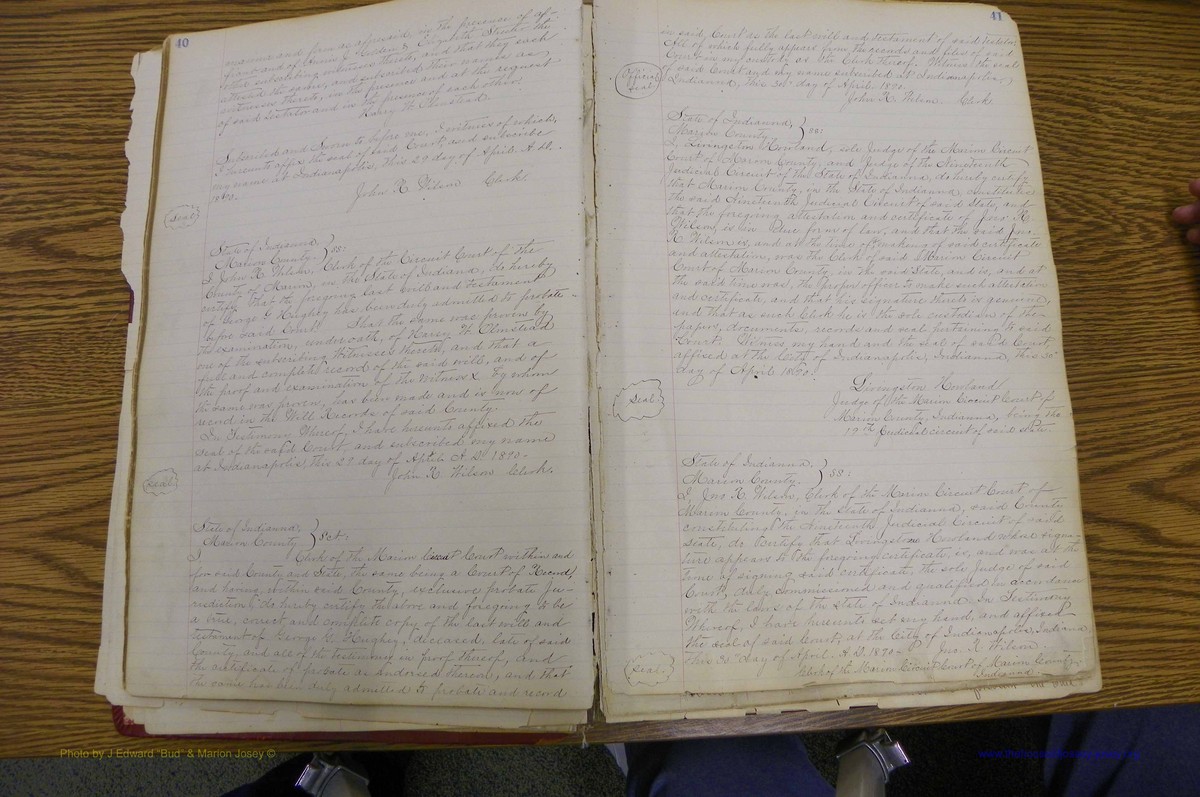 40
manner and form as aforesaid, in the presence of af-
fiant and of
other subscribing witnesses thereto, and that they each
attested the same, and subscribed their names as
witnesses thereto, in the presence and at the request
of said testator and in the presence of each other.
Harry H. Olmstead.
Subscribed and Sworn to before me, Inwitness of which,
I hereunto affix the seal of said Court, and subscribe
my name at Indianapolis, this 29 day of April A. D.
1890.
John R. Wilson Clerk
Seal
State of Indianna,
Marion County. } SS:
I John R. Wilson, Clerk of the Circuit Court of the
County of Marion, in the State of Indiana, do hereby
certify that the foregoing last will and testament
of George G Hughey has been duly admitted to probate
before said Court. That the same was proven by
the examination, under oath, of Harry H. Olmstead
one of the subscribing witnesses thereto, and that a
full and complete record of the said will, and of
the proof and examination of the witness by whom
the same was proven, has been made and is now of
record in the Will Records of said County.
In Testimony Whereof, I have hereunto affixed the
seal of the said Court, and subscribed my name
at Indianapolis, this 29 day of April A. D. 1890-
John R. Wilson Clerk.
Seal
State of Indianna,
Marion County } Sct.
I Clerk of the Marion Circuit Court within and
for said County and State, the same being a Court of Record,
and having within said County, exclusive probate Ju-
risdiction, do hereby certify the above and foregoing to be
a true, correct and complete copy of the last will and
testament of George G. Hughey, deceased, late of said
County and all of the testimony in proof thereof, and
the certificate of probate as endorsed thereon, and that
the same has been duly admitted to probate and record
41
in said Court as the last will and testament of said testator,
All of which fully appear from the records and files of said
Court in my custody as the Clerk thereof. Witness the seal
of said Court and my name subscribed at Indianapolis,
Indianna, this 30th day of April 1890.
John R. Wilson. Clerk.
Official Seal
State of Indianna,
Marion County. } SS:
I, Livingston Howland, sole Judge of the Marion Circuit
Court of Marion County, and Judge of the Nineteenth
Judicial Circuit of the State of Indianna, do hereby certify
that Marion County, in the State of Indianna, constitutes
the said Nineteenth Judicial Circuit of said State, and
that the foregoing attestation and certificate of Jno. R.
Wilson, is in Due form of law, and that the said Jno.
R. Wilson, is, and at the time of making of said certificate
and attestation, was the Clerk of said Marion Circuit
Court of Marion County, in the said State, and is, and at
the said time was, the Proper officer to make such attestation
and certificate, and that his signature thereto is genuine,
and that as such Clerk he is the sole custodian of the
papers, documents, records and seal pertaining to said
Court. Witness my hand and the seal of said Court
affixed at the City of Indianapolis, Indianna, this 30th
day of April 1890.
Livingston Howland
Judge of the Marion Circuit Court of
Marion County, Indianna, being the
19th Judicial circuit of said state.
Seal
State of Indianna.
Marion County. } SS:
I, Jno R. Wilson, Clerk of the Marion Circuit Court of
Marion County, in the State of Indianna, said County
constituting the Nineteenth Judicial Circuit of said
State, do certify that Livingston Howland whose signa-
ture appears to the foregoing certificate, is, and was at the
time of signing said certificate, the sole Judge of said
Court, duly commissioned and qualified in accordance
with the laws of the State of Indianna. In Testimony
Whereof, I have hereunto set my hand, and affixed
the seal of said Court, at the City of Indianapolis, Indiana,
this 30th day of April, A. D. 1890- Jno. R. Wilson
Clerk of the Marion Circuit Court of Marion County,
Indianna.
Seal
Photo by J Edward "Bud" & Marion Josey ©